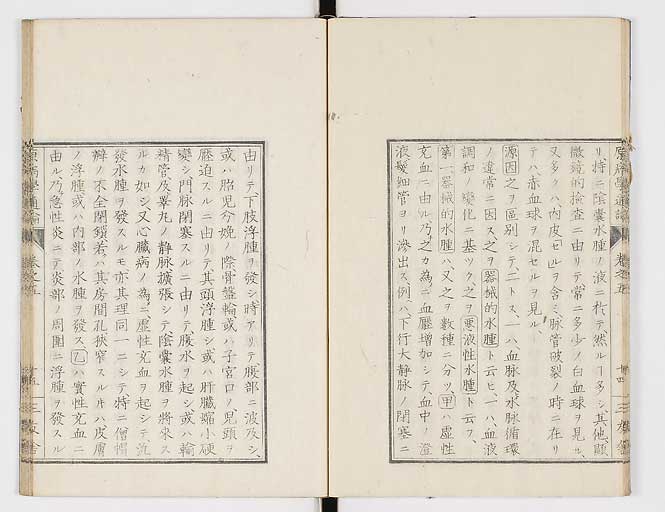 リ、特ニ陰囊水腫ノ液ニ於テ然ルヿ多シ、其他顯
微鏡的檢査ニ由リテ常ニ多少ノ白血球ヲ見ル、
又多クハ内皮セルヲ含ミ、脈管破裂ノ時ニ在リ
テハ、赤血球ヲ混セルヲ見ル
源因之ヲ區別シテ二トス、一ハ血脈及水脈循環
ノ違常ニ因ス之ヲ器械的水腫ト云ヒ、一ハ血液
調和ノ變化ニ基ツク之ヲ惡液性水腫ト云フ、
第一器械的水腫ハ、又之ヲ數種ニ分ツ、甲ハ虛性
充血ニ由ル乃之カ為ニ血壓增加シテ、血中ノ澄
液髮細管ヨリ滲出ス、例ハ、下行大靜脉ノ閉塞ニ
原病學通論
卷之五
十四
三友舍
由リテ、下肢浮腫ヲ發シ時アリテ腹部ニ波及シ、
或ハ胎兒分娩ノ際骨盤輪或ハ子宮口ノ兒頭ヲ
壓迫スルニ由リテ、其頭浮腫シ或ハ肝臟縮小硬
變シ門脉閉塞スルニ由リテ腹水ヲ起シ或ハ輸
精管及睾丸ノ靜脉擴張シテ、陰囊水腫ヲ將來ス
ルカ如シ、又心臟病ノ為ニ、虛性充血ヲ起シテ汎
發水腫ヲ發スルモ亦其理同一ニシテ、特ニ僧帽
瓣ノ不全閉鎖若ハ其房間孔狹窄スルキハ皮膚
ノ浮腫或ハ内部ノ水腫ヲ發ス、乙ハ實性充血ニ
由ル乃急性炎ニテ炎部ノ周圍ニ浮腫ヲ發スル
原病學通論
卷之五
十五
三友舍